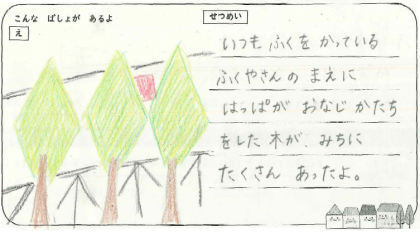 こんな ばしょが あるよ
え
せつめい
いつも ふくを かっている
ふくやさんの まえに
はっぱが おなじ かたち
をした 木が、みちに
たくさん あったよ。